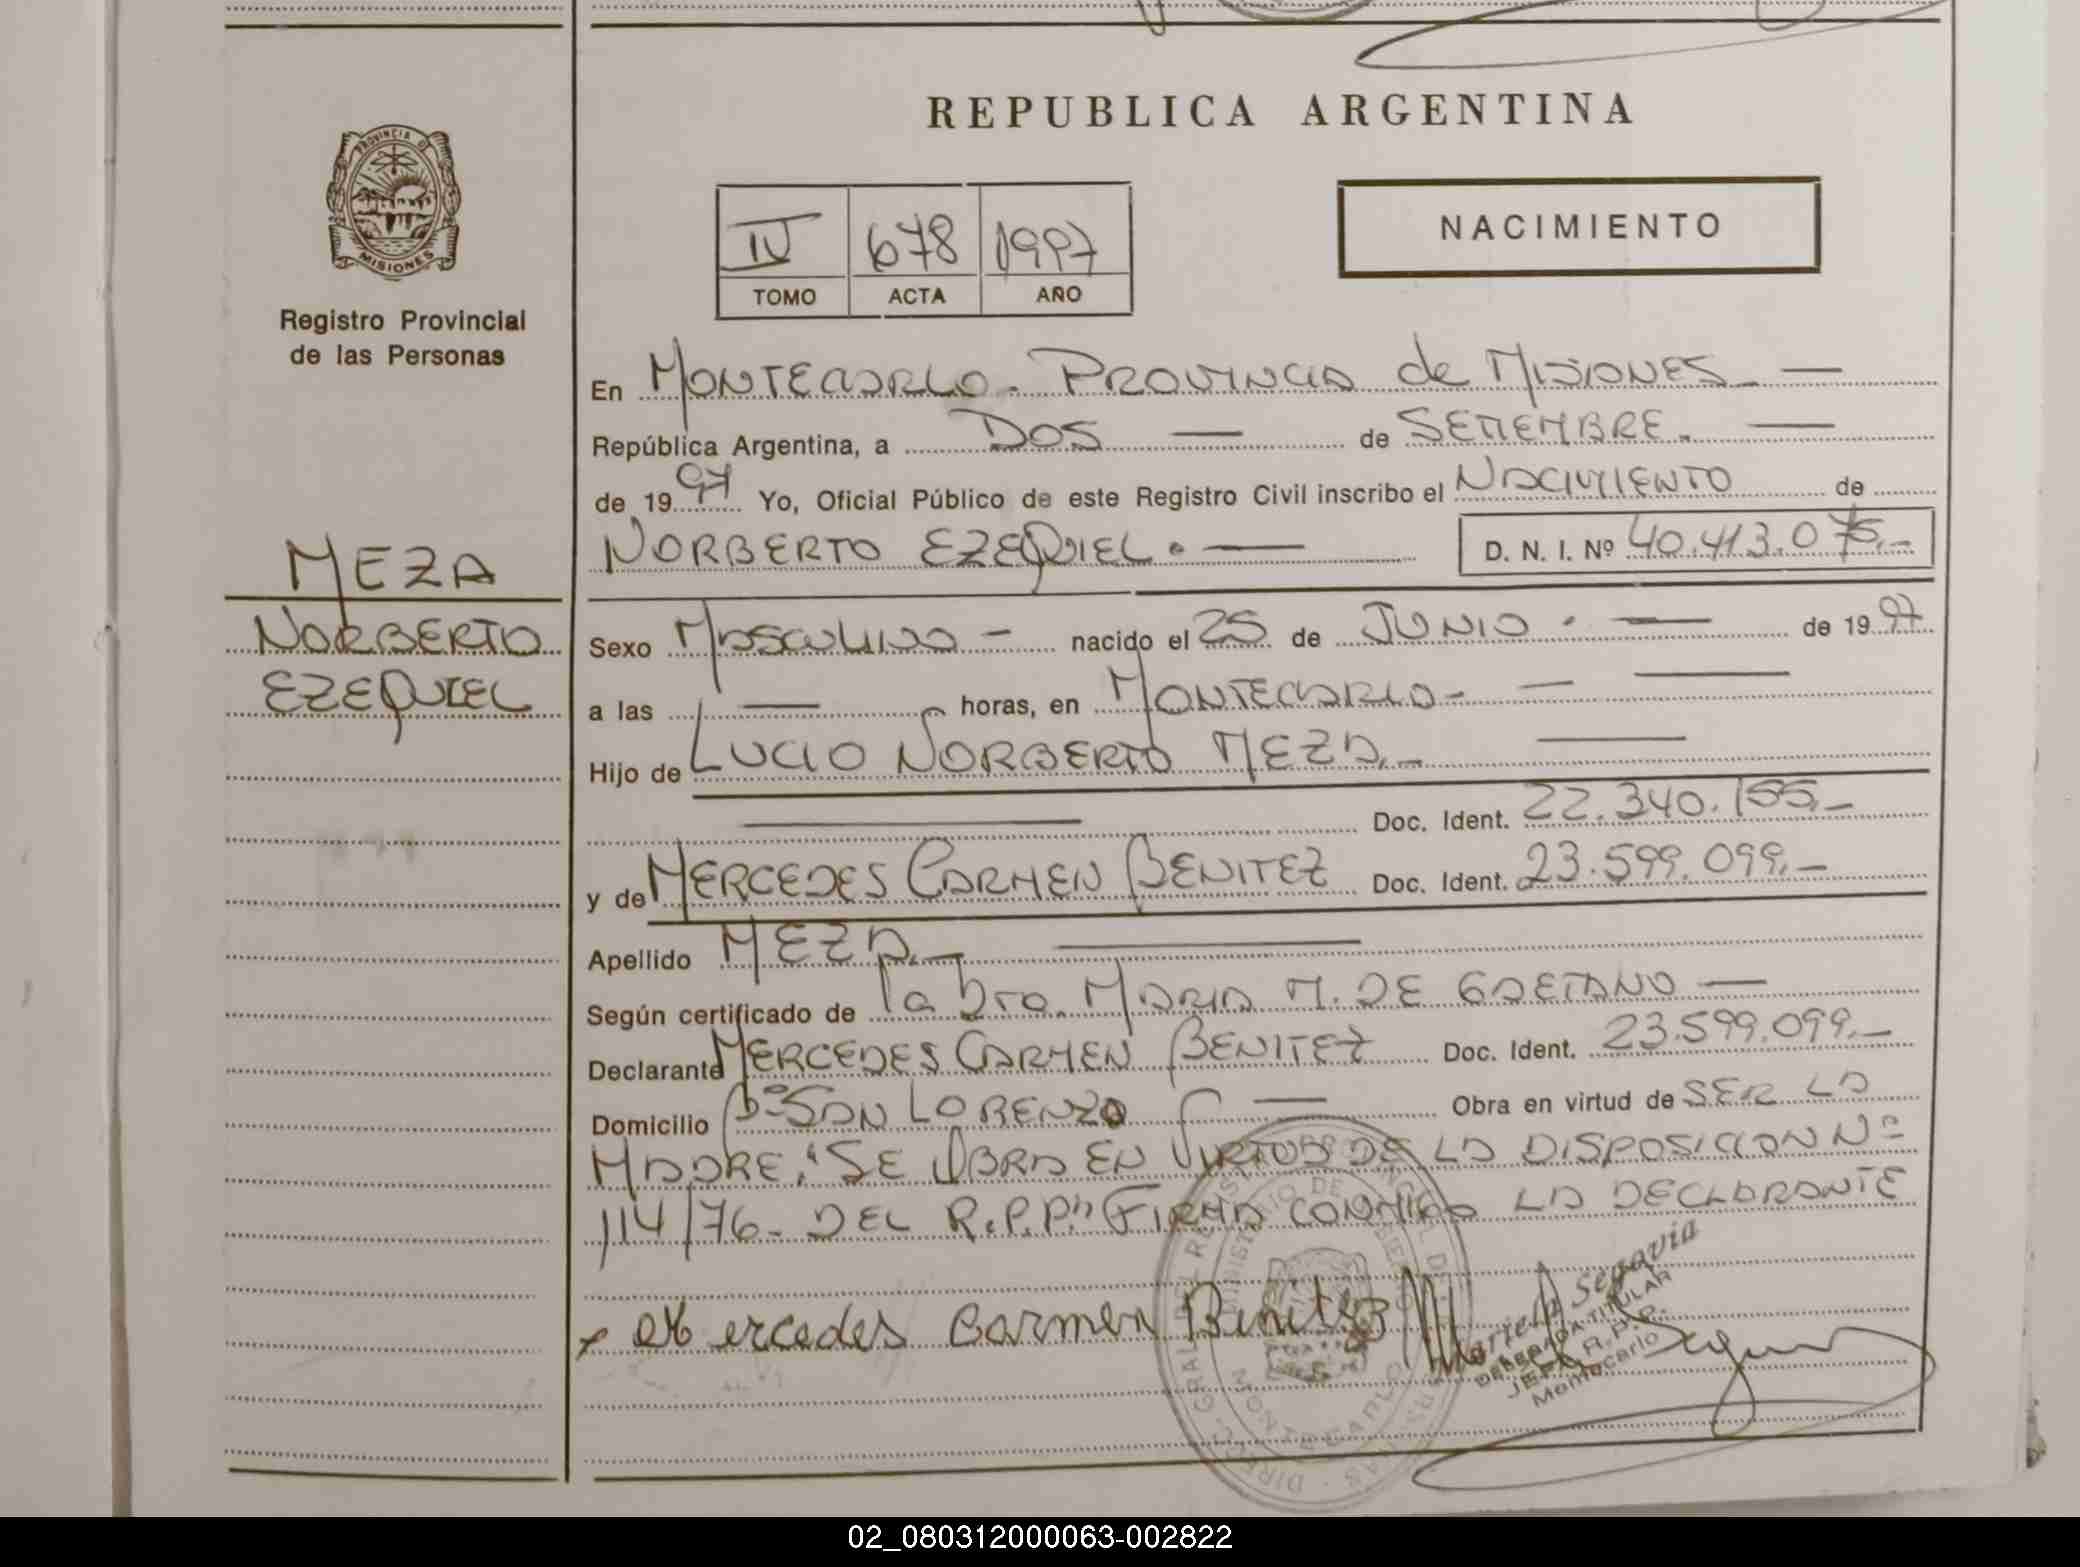 REPUBLICA ARGENTINA
PROVINCIA DE
MISIONES
Registro Provincial
de las Personas
IV 678 1997
TOMO ACTA AÑO
NACIMIENTO
MEZA
NORBERTO
EZEQUIEL
En MONTECARLO. PROVINCIA de MISIONES —
República Argentina, a DOS — de SETIEMBRE. —
de 1997 Yo, Oficial Público de este Registro Civil inscribo el NACIMIENTO de
NORBERTO EZEQUIEL. — D. N. I. Nº 40.413.075.-
Sexo MASCULINO - nacido el 25 de JUNIO . — de 1997
a las — horas, en MONTECARLO - — —
Hijo de LUCIO NORBERTO MEZA.- —
— Doc. Ident. 22.340.155.-
y de MERCEDES CARMEN BENITEZ Doc. Ident. 23.599.099.-
Apellido MEZA.- —
Según certificado de la Dra. MARIA M. DE GAETANO —
Declarante MERCEDES CARMEN BENITEZ Doc. Ident. 23.599.099.-
Domicilio Bº SAN LORENZO — Obra en virtud de SER LA
MADRE. "SE OBRA EN VIRTUD DE LA DISPOSICION Nº
114/76- DEL R.P.P." FIRMA CONMIGO LA DECLARANTE
x Mercedes Carmen Benitez
Mariela Segovia
DELEGADA TITULAR
JEFA R.P.P.
Montecarlo
MONTECARLO
02_080312000063-002822